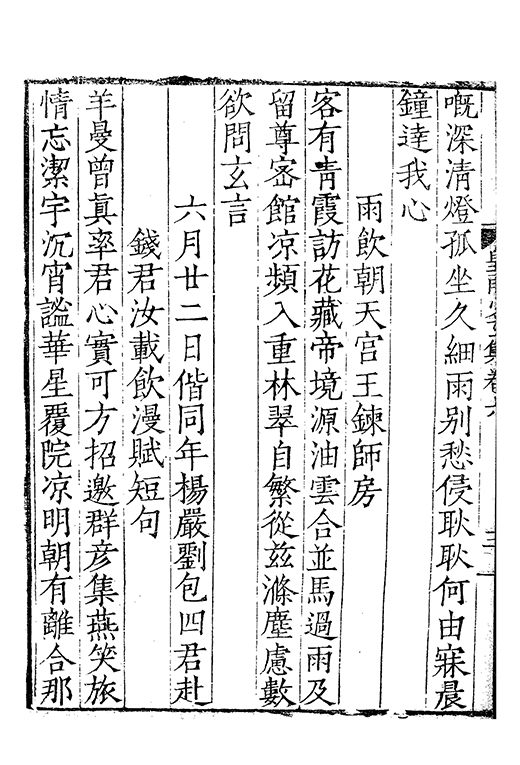 嘅深清燈孤坐久細雨别愁侵耿耿何由寐晨
鐘達我心
雨飲朝天宫王鍊師房
客有靑霞訪花藏帝境源油雲合並馬過雨及
留尊密館凉頻入重林翠自繁從兹滌塵慮數
欲問玄言
六月廿二日偕同年楊嚴劉包四君赴
錢君汝載飲漫賦短句
羊曼曾眞率君心實可方招邀群彦集燕笑旅
情忘潔宇沉宵謐華星覆院凉明朝有離合那